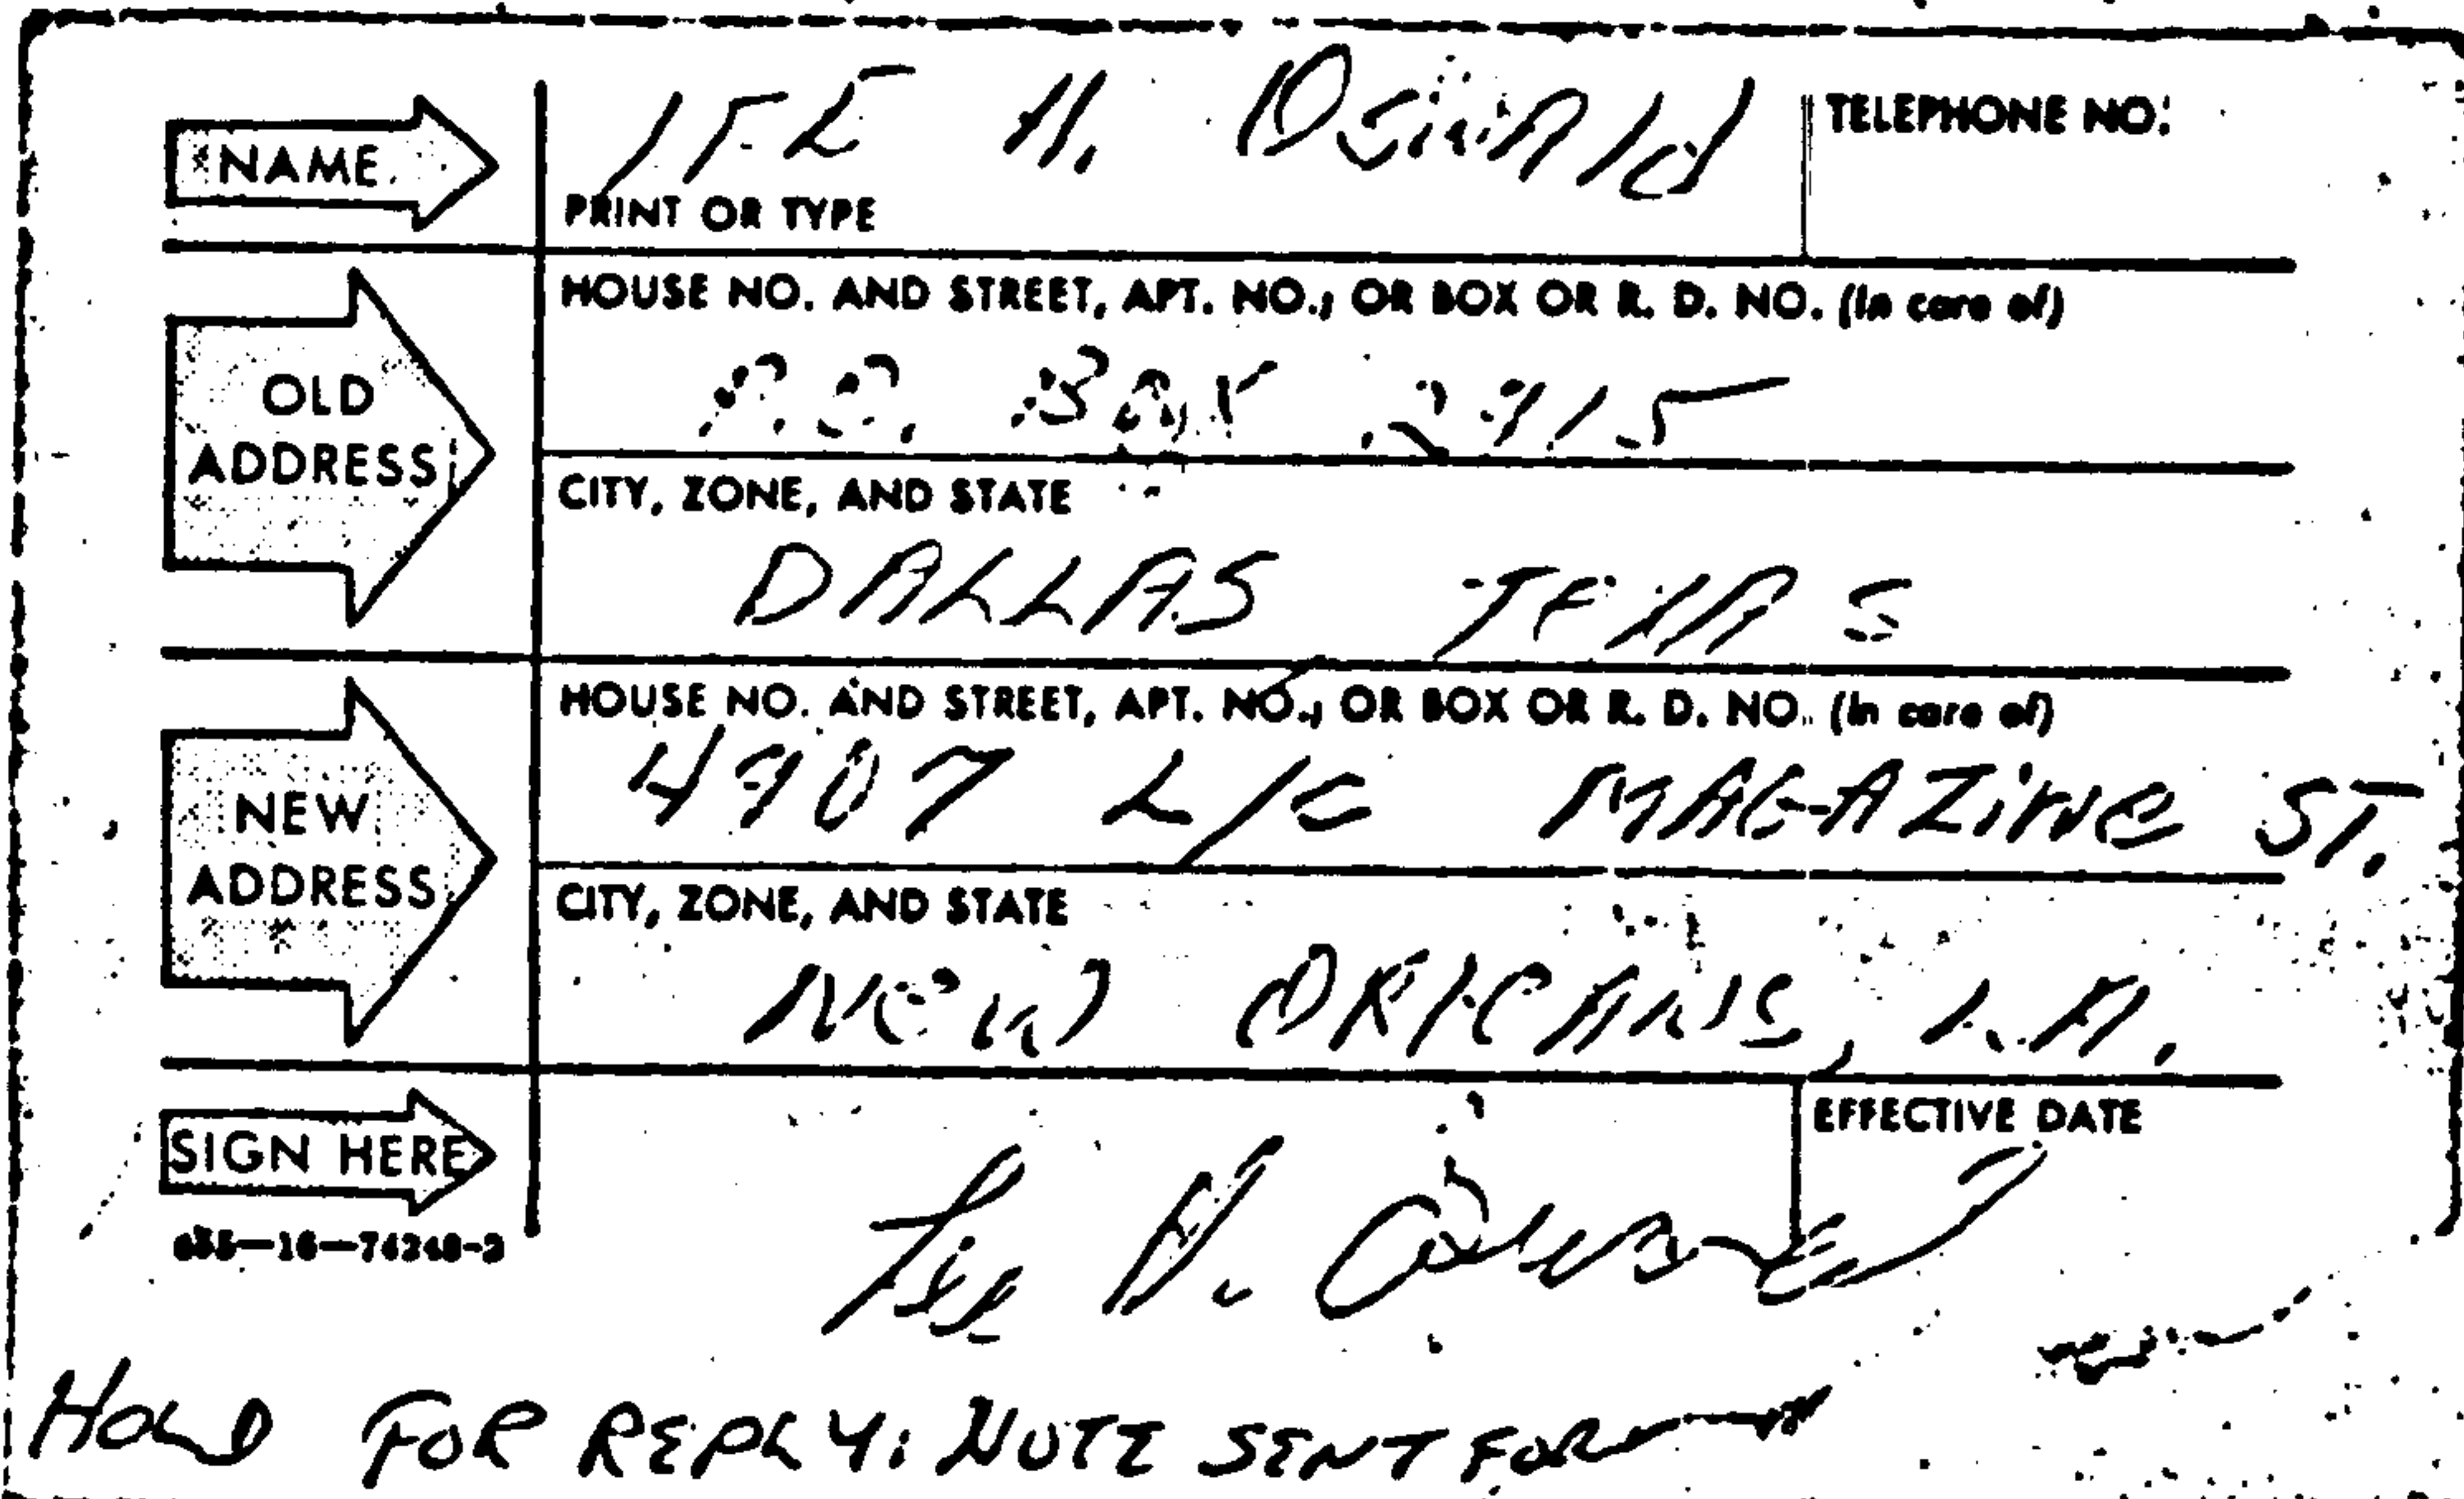 NAME
LEE H. OSWALD
TELEPHONE NO.
PRINT OR TYPE
OLD ADDRESS
HOUSE NO. AND STREET, APT. NO., OR BOX OR R. D. NO. (In care of)
P.O. BOX 2915
CITY, ZONE, AND STATE
DALLAS, TEXAS
NEW ADDRESS
HOUSE NO. AND STREET, APT. NO., OR BOX OR R. D. NO. (In care of)
4907 MAGAZINE ST.
CITY, ZONE, AND STATE
NEW ORLEANS, LA.
SIGN HERE
EFFECTIVE DATE
Lee H. Oswald
c55—16—76248-2
HOLD FOR REPLY: NOTE SENT FOR